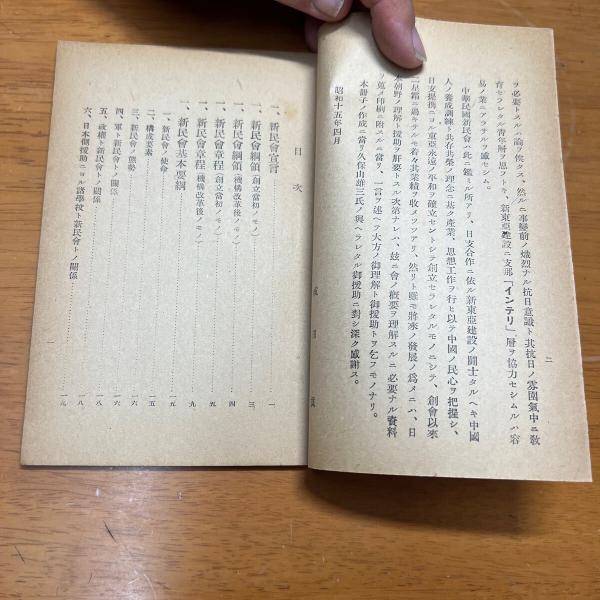 二
ヲ必要トスルハ論ヲ俟タス。然ルニ事變前ノ熾烈ナル抗日意識ト其抗日ノ雰圍氣中ニ敎
育セラレタル青年層ヲ思フトキ、新東亞建設ニ支那「インテリ」層ヲ協力セシムルハ容
易ノ業ニアラサルヲ感セシム。
中華民國新民會ハ此ニ鑑ミル所アリ、日支合作ニ依ル新東亞建設ノ鬪士タルヘキ中國
人ノ養成訓練ト共存共榮ノ理念ニ基ク產業、思想工作ヲ行ヒ以テ中國ノ民心ヲ把握シ、
日支提携ニヨル東亞永遠ノ平和ヲ確立セントシテ創立セラレタルモノニシテ、創會以來
二星霜ニ過キサルモ着々其業績ヲ收メツツアリ、然リト雖モ將來ノ發展ノ爲メニハ、日
本朝野ノ理解ト援助ヲ肝要トスル次第ナレハ、玆ニ會ノ槪要ヲ理解スルニ必要ナル資料
ヲ蒐メ印刷ニ附スルニ當リ、一言ヲ述ヘ大方ノ御理解ト御援助トヲ乞フモノナリ。
本冊子ノ作成ニ當リ久保山雄三氏ノ與ヘラレタル御援助ニ對シ深ク感謝ス。
昭和十五年四月
目次
一、新民會宣言……一
一、新民會綱領(創立當初ノモノ)……三
一、新民會綱領(機構改革後ノモノ)……四
一、新民會章程(創立當初ノモノ)……五
一、新民會章程(機構改革後ノモノ)……九
一、新民會基本要綱
一、新民會ノ使命……一五
二、構成要素……一五
三、新民會ノ態勢……一六
四、軍ト新民會トノ關係……一六
五、政權ト新民會トノ關係……一八
六、日本側援助ニヨル諸學校ト新民會トノ關係……一九
一